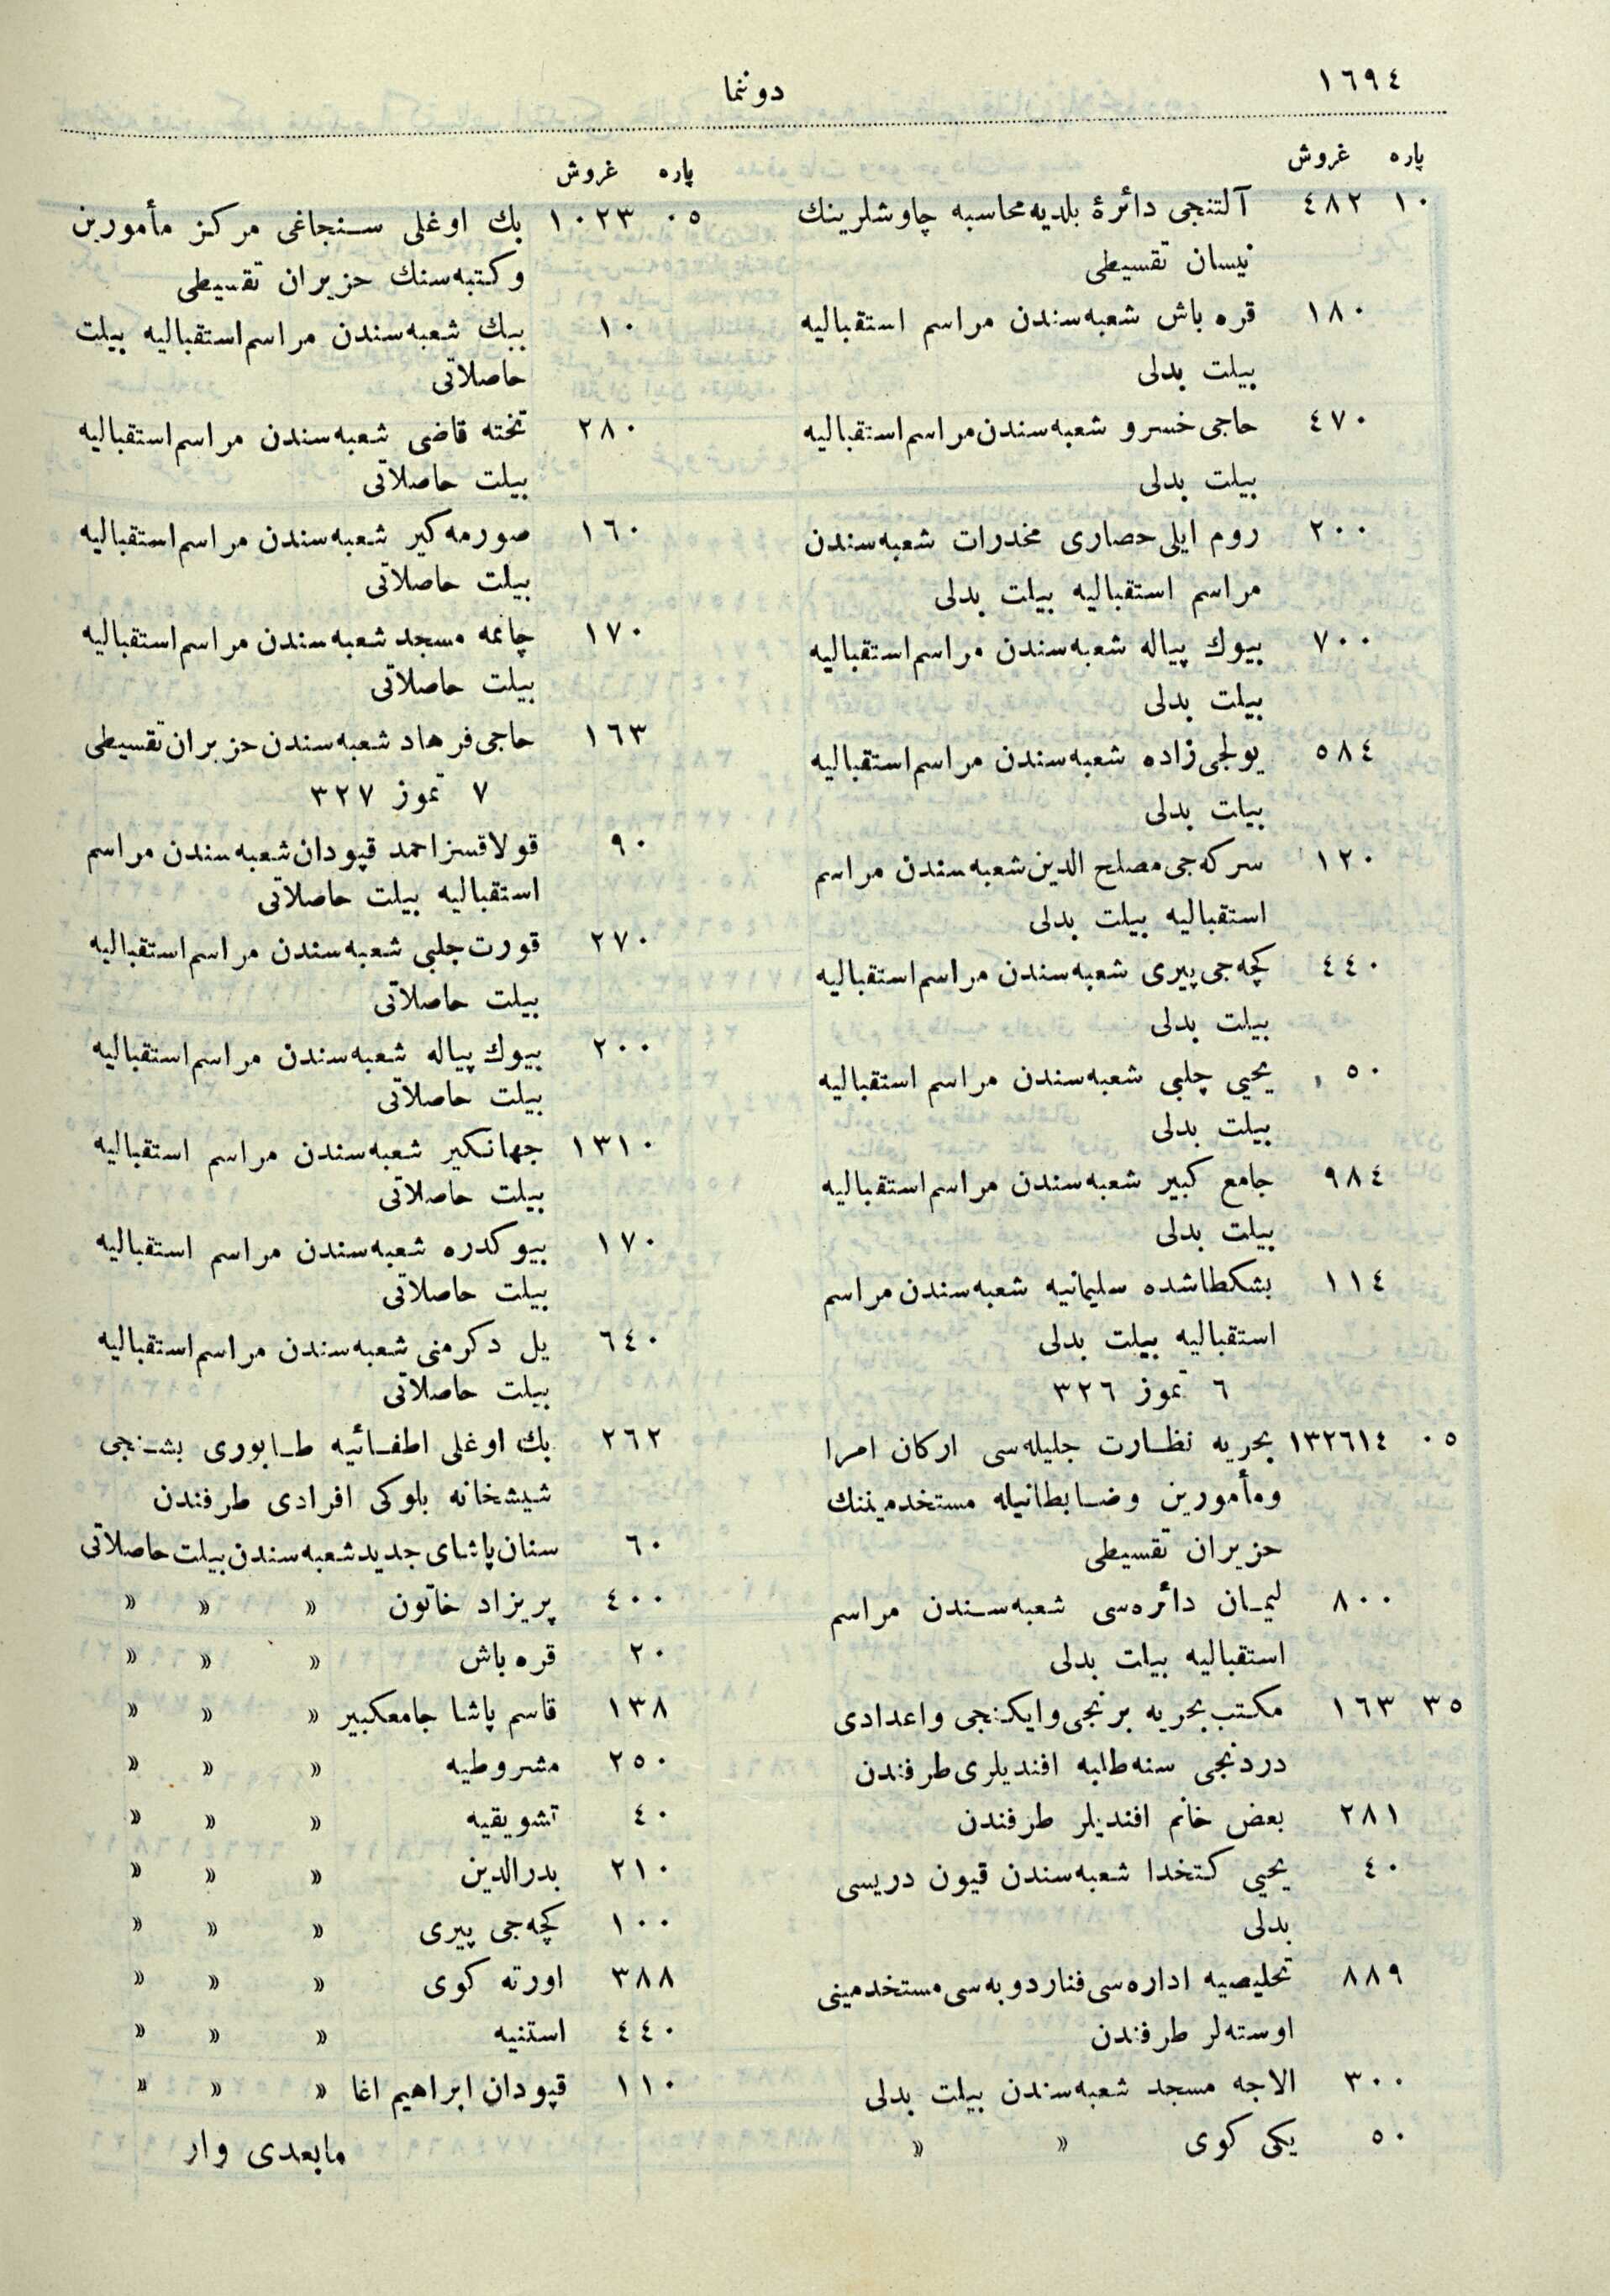 ١٦٩٤
دوننما
پاره غروش
١٠ ٤٨٢ آلتنجی دائرۀ بلدیه محاسبه چاوشلرینك
نیسان تقسیطی
١٨٠ قره باش شعبه سندن مراسم استقبالیه
بیلت بدلی
٤٧٠ حاجی خسرو شعبه سندن مراسم استقبالیه
بیلت بدلی
٢٠٠ روم ایلی حصاری مخدرات شعبه سندن
مراسم استقبالیه بیلت بدلی
٧٠٠ بیوك پیاله شعبه سندن مراسم استقبالیه
بیلت بدلی
٥٨٤ یولجی زاده شعبه سندن مراسم استقبالیه
بیلت بدلی
١٢٠ سرکه جی مصلح الدین شعبه سندن مراسم
استقبالیه بیلت بدلی
٤٤٠ کچه جی پیری شعبه سندن مراسم استقبالیه
بیلت بدلی
٥٠ یحیی چلبی شعبه سندن مراسم استقبالیه
بیلت بدلی
٩٨٤ جامع کبیر شعبه سندن مراسم استقبالیه
بیلت بدلی
١١٤ بشکطاشده سلیمانیه شعبه سندن مراسم
استقبالیه بیلت بدلی
٦ تموز ٣٢٦
٠٥ ١٣٢٦١٤ بحریه نظارت جلیله سی ارکان امرا
ومأمورین وضابطانیله مستخدمیننك
حزیران تقسیطی
٨٠٠ لیمان دائره سی شعبه سندن مراسم
استقبالیه بیلت بدلی
٣٥ ١٦٣ مکتب بحریه برنجی وایکنجی واعدادی
دردنجی سنه طلبه افندیلری طرفندن
٢٨١ بعض خانم افندیلر طرفندن
٤٠ یحیی کتخدا شعبه سندن قیون دریسی
بدلی
٨٨٩ تخلیصیه اداره سی فنار دوبه سی مستخدمینی
اوسته لر طرفندن
٣٠٠ الاجه مسجد شعبه سندن بیلت بدلی
٥٠ یکی کوی » »
پاره غروش
٠٥ ١٠٢٣ بك اوغلی سنجاغی مرکز مأمورین
وکتبه سنك حزیران تقسیطی
١٠ ببك شعبه سندن مراسم استقبالیه بیلت
حاصلاتی
٢٨٠ تخته قاضی شعبه سندن مراسم استقبالیه
بیلت حاصلاتی
١٦٠ صورمه کیر شعبه سندن مراسم استقبالیه
بیلت حاصلاتی
١٧٠ چاتمه مسجد شعبه سندن مراسم استقبالیه
بیلت حاصلاتی
١٦٣ حاجی فرهاد شعبه سندن حزیران تقسیطی
٧ تموز ٣٢٧
٩٠ قولاقسز احمد قپودان شعبه سندن مراسم
استقبالیه بیلت حاصلاتی
٢٧٠ قورت جلبی شعبه سندن مراسم استقبالیه
بیلت حاصلاتی
٢٠٠ بیوك پیاله شعبه سندن مراسم استقبالیه
بیلت حاصلاتی
١٣١٠ جهانکیر شعبه سندن مراسم استقبالیه
بیلت حاصلاتی
١٧٠ بیوکدره شعبه سندن مراسم استقبالیه
بیلت حاصلاتی
٦٤٠ یل دکرمنی شعبه سندن مراسم استقبالیه
بیلت حاصلاتی
٢٦٢ بك اوغلی اطفائیه طابوری بشنجی
شیشخانه بلوکی افرادی طرفندن
٦٠ سنان پاشای جدید شعبه سندن بیلت حاصلاتی
٤٠٠ پریزاد خاتون » » »
٢٠ قره باش » » »
١٣٨ قاسم پاشا جامعکبیر » » »
٢٥٠ مشروطیه » » »
٤٠ تشویقیه » » »
٢١٠ بدرالدین » » »
١٠٠ کچه جی پیری » » »
٣٨٨ اورته کوی » » »
٤٤٠ استنیه » » »
١١٠ قپودان ابراهیم اغا » » »
مابعدی وار